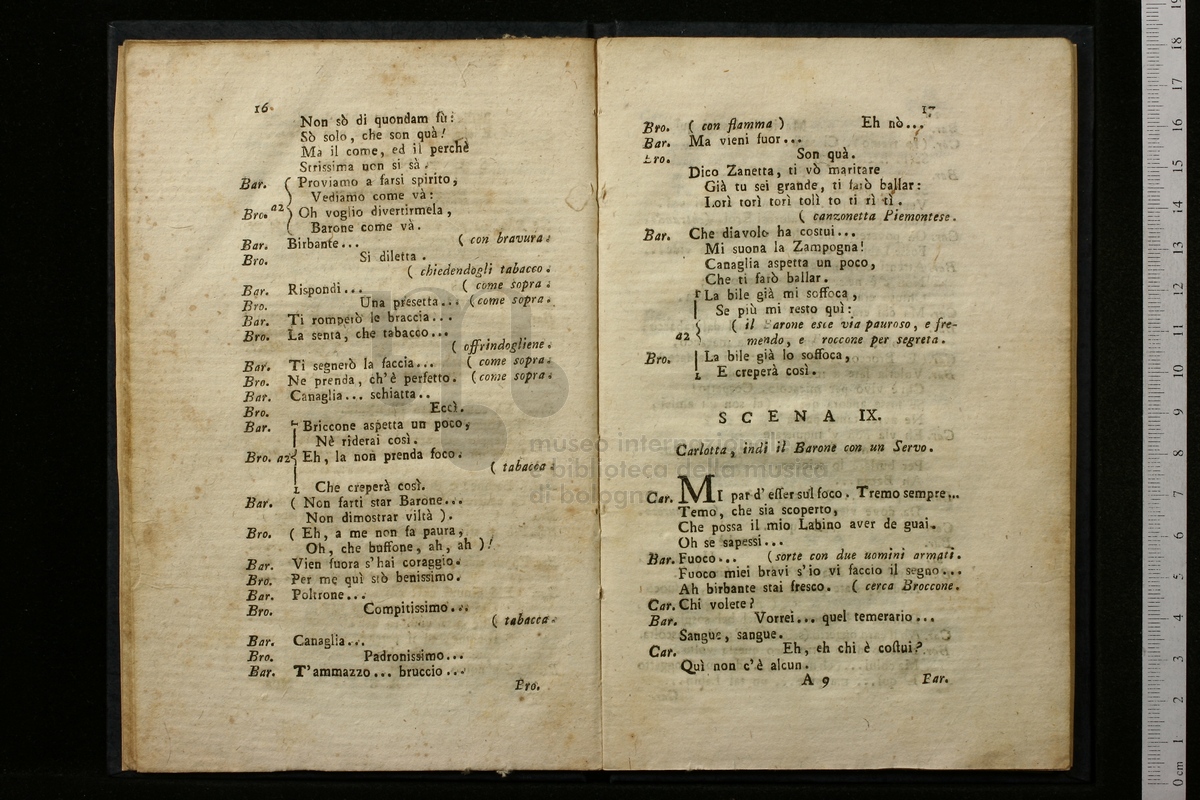 16
Non sò di quondam fù:
Sò solo, che son quà!
Ma il come, ed il perchè
Strissima non si sà.
Bar. Proviamo a farsi spirito,
Vediamo come và:
Bro. a2 Oh voglio divertirmela,
Barone come và.
Bar. Birbante... ( con bravura.
Bro. Si diletta.
( chiedendogli tabacco.
Bar. Rispondi... ( come sopra.
Bro. Una presetta... (come sopra.
Bar. Ti romperò le braccia...
Bro. La senta, che tabacco...
( offrindogliene.
Bar. Ti segnerò la faccia... ( come sopra.
Bro. Ne prenda, ch'è perfetto. (come sopra.
Bar. Canaglia... schiatta..
Bro. Eccì.
Bar. Briccone aspetta un poco,
Nè riderai così.
Bro. a2 Eh, la non prenda foco.
( tabacca.
Che creperà così.
Bar. ( Non farti star Barone...
Non dimostrar viltà ).
Bro. ( Eh, a me non fa paura,
Oh, che buffone, ah, ah )!
Bar. Vien fuora s'hai coraggio.
Bro. Per me quì stò benissimo.
Bar. Poltrone...
Bro. Compitissimo...
( tabacca.
Bar. Canaglia...
Bro. Padronissimo...
Bar. T'ammazzo... bruccio...
Bro.
17
Bro. ( con flamma ) Eh nò...
Bar. Ma vieni fuor...
Bro. Son quà.
Dico Zanetta, ti vò maritare
Già tu sei grande, ti farò ballar:
Lorì torì torì tolì to ti rì tì.
( canzonetta Piemontese.
Bar. Che diavolo ha costui...
Mi suona la Zampogna!
Canaglia aspetta un poco,
Che ti farò ballar.
La bile già mi soffoca,
Se più mi resto quì:
( il Barone esce via pauroso, e fre-
a2 mendo, e roccone per segreta.
Bro. La bile già lo soffoca,
E creperà così.
SCENA IX.
Carlotta, indi il Barone con un Servo.
Car. MI par d'esser sul foco. Tremo sempre...
Temo, che sia scoperto,
Che possa il mio Labino aver de guai.
Oh se sapessi...
Bar. Fuoco... (sorte con due uomini armati.
Fuoco miei bravi s'io vi faccio il segno...
Ah birbante stai fresco. ( cerca Broccone.
Car. Chi volete?
Bar. Vorrei... quel temerario...
Sangue, sangue.
Car. Eh, eh chi è costui?
Quì non c'è alcun.
A 9 Bar.
museo internazionale
biblioteca della musica
di bologna